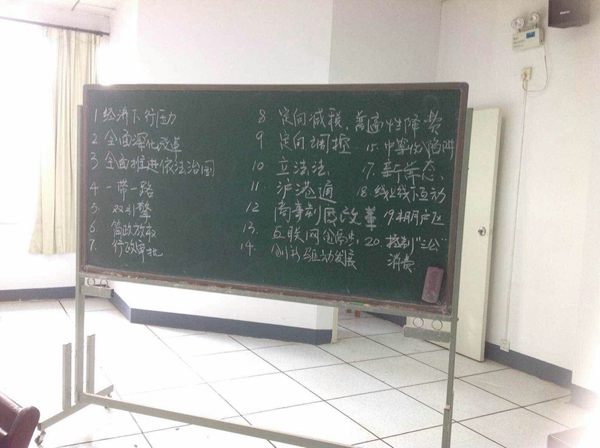 1 经济下行压力
2 全面深化改革
3 全面推进依法治国
4 一带一路
5. 双引擎
6 简政放权
7. 行政审批
8 定向减税、普遍性降费
9 定向调控
10 立法法、
11 沪港通
12 高考制度改革
13. 互联网金融、
14. 创新驱动发展
15. 中等收入陷阱
17. 新常态、
18. 线上线下互动
19 自贸区
20. 控制"三公"
消费